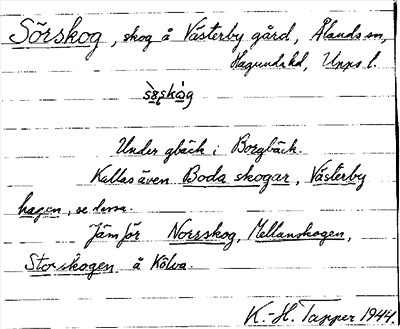 Sörskog, skog å Västerby gård, Ålands sn,
Hagunda hd, Upps l.
sö̀rskó̱g
Under gbäck i Borgbäck.
Kallas även Boda skogar, Västerby
hagen, se dessa.
Jämför Norrskog, Mellanskogen,
Storskogen å Kölva.
K.-H. Tapper 1944.